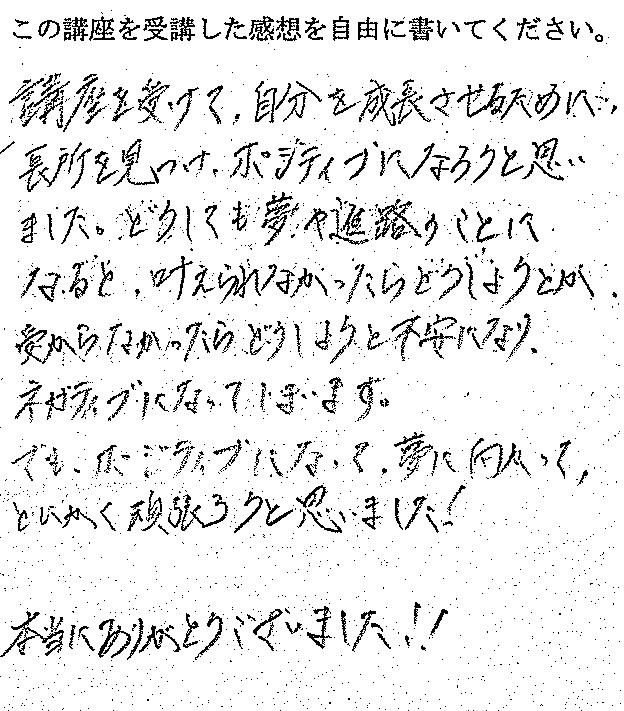 この講座を受講した感想を自由に書いてください。
講座を受けて、自分を成長させるために、
長所を見つけ、ポジティブになろうと思い
ました。どうしても夢や進路のことに
なると、叶えられなかったらどうしようとか、
受からなかったらどうしようと不安になり、
ネガティブになってしまいます。
でも、ポジティブになって、夢に向かって、
とにかく頑張ろうと思いました！
本当にありがとうございました！！